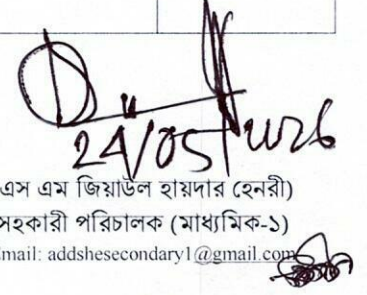 24/05/2026
এস এম জিয়াউল হায়দার হেনরী)
সহকারী পরিচালক (মাধ্যমিক-১)
mail: addshesecondary1@gmail.com